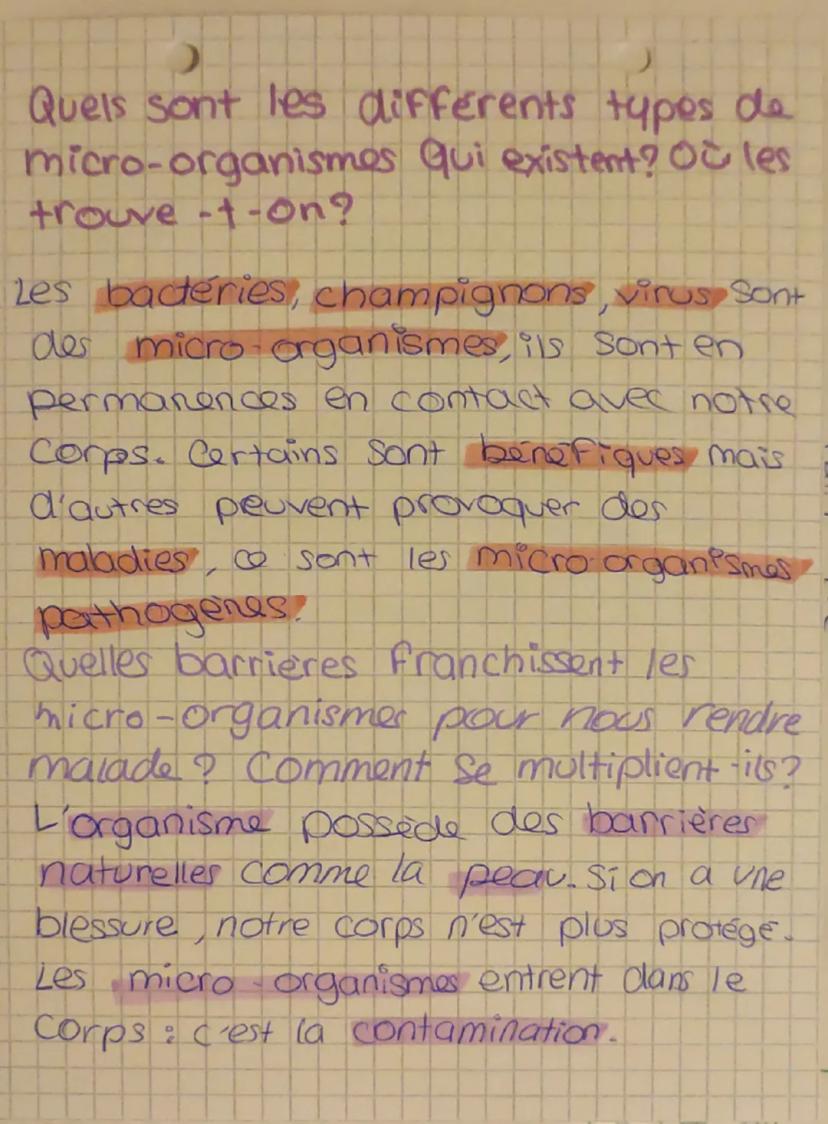 Quels sont les différents types de
micro-organismes qui existent? Où les
trouve-t-on?
Les bactéries, champignons, virus sont
des micro-organismes, ils sont en
permanences en contact avec notre
corps. Certains sont bénéfiques mais
d'autres peuvent provoquer des
maladies, ce sont les micro-organismes
pathogènes.
Quelles barrières franchissent les
micro-organismes pour nous rendre
malade? Comment se multiplient-ils?
L'organisme possède des barrières
naturelles comme la peau. Si on a une
blessure, notre corps n'est plus protégé.
Les micro-organismes entrent dans le
corps : c'est la contamination.